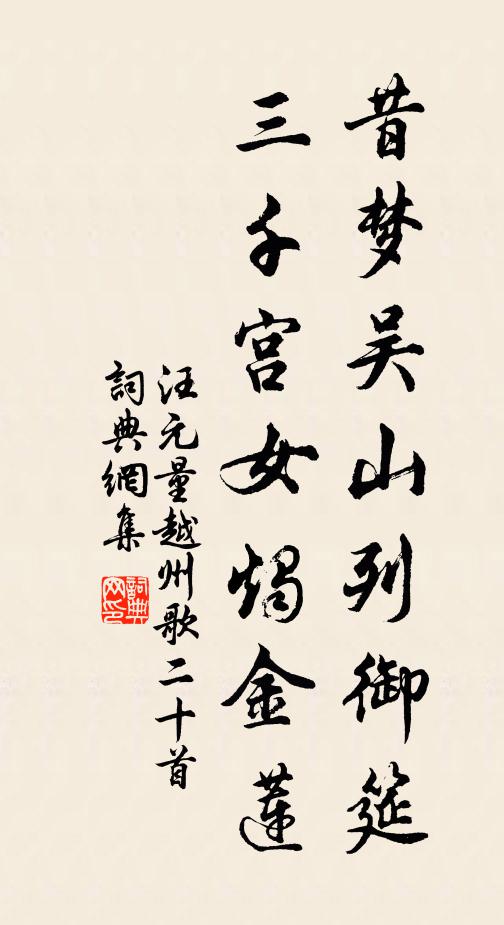 昔梦吴山列御筵
三千宫女烛金莲
汪元量越州歌二十首
詞典網集
詞典网印